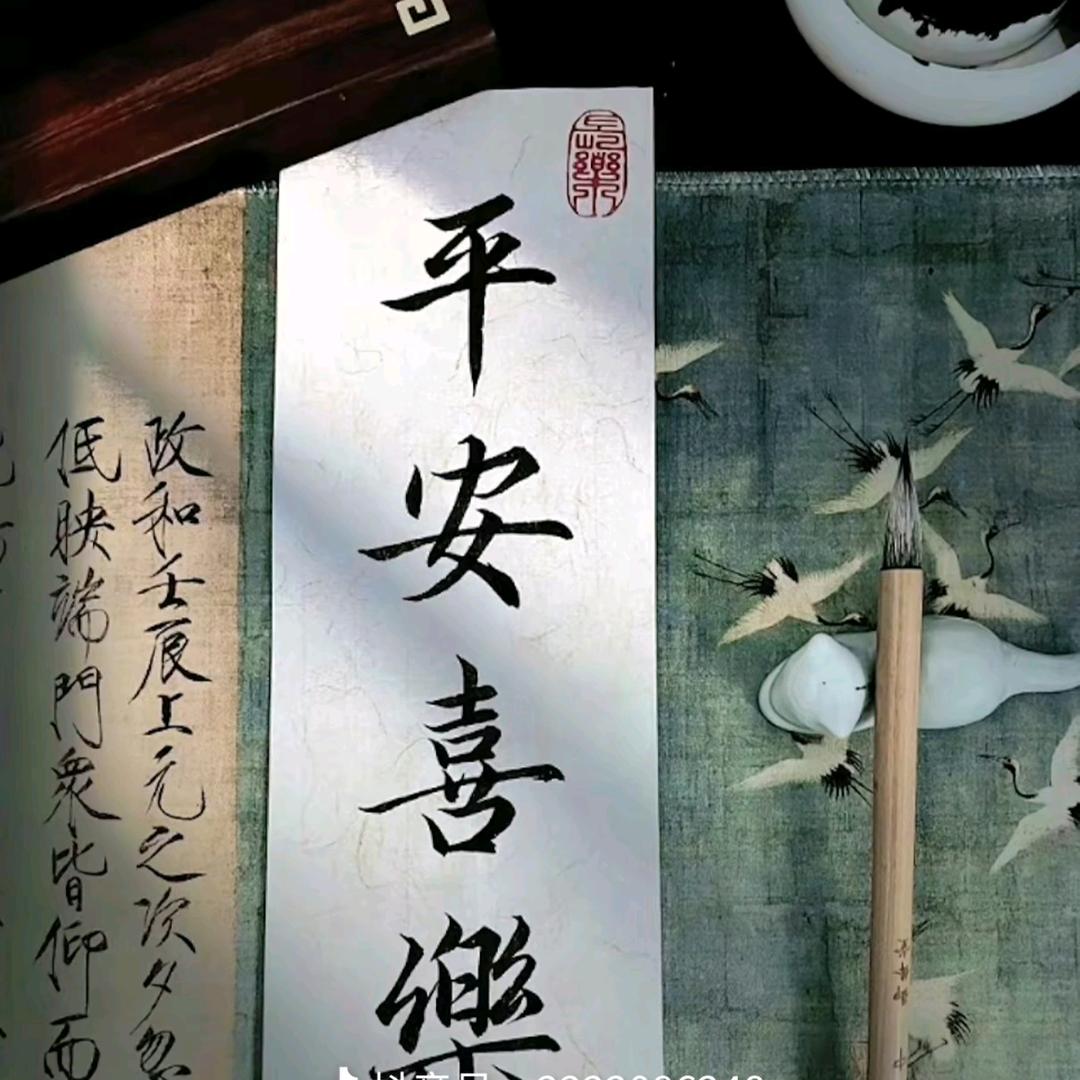 平安喜樂
政和壬辰上元之次夕忽
低映端門眾皆仰而